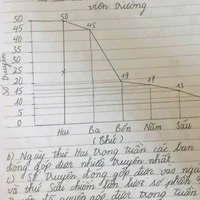 viên trường
Số truyện
50
45
40
35
30
25
20
15
10
5
0
50
45
19
17
Hai Ba Bốn Năm Sáu
(Thứ)
b) Ngày thứ Hai trong tuần các bạn
đóng góp được nhiều truyện nhất.
c) Số truyện đóng góp được vào ngày
và thứ Sáu chiếm tiền được số phần
quyên góp được trong tuần